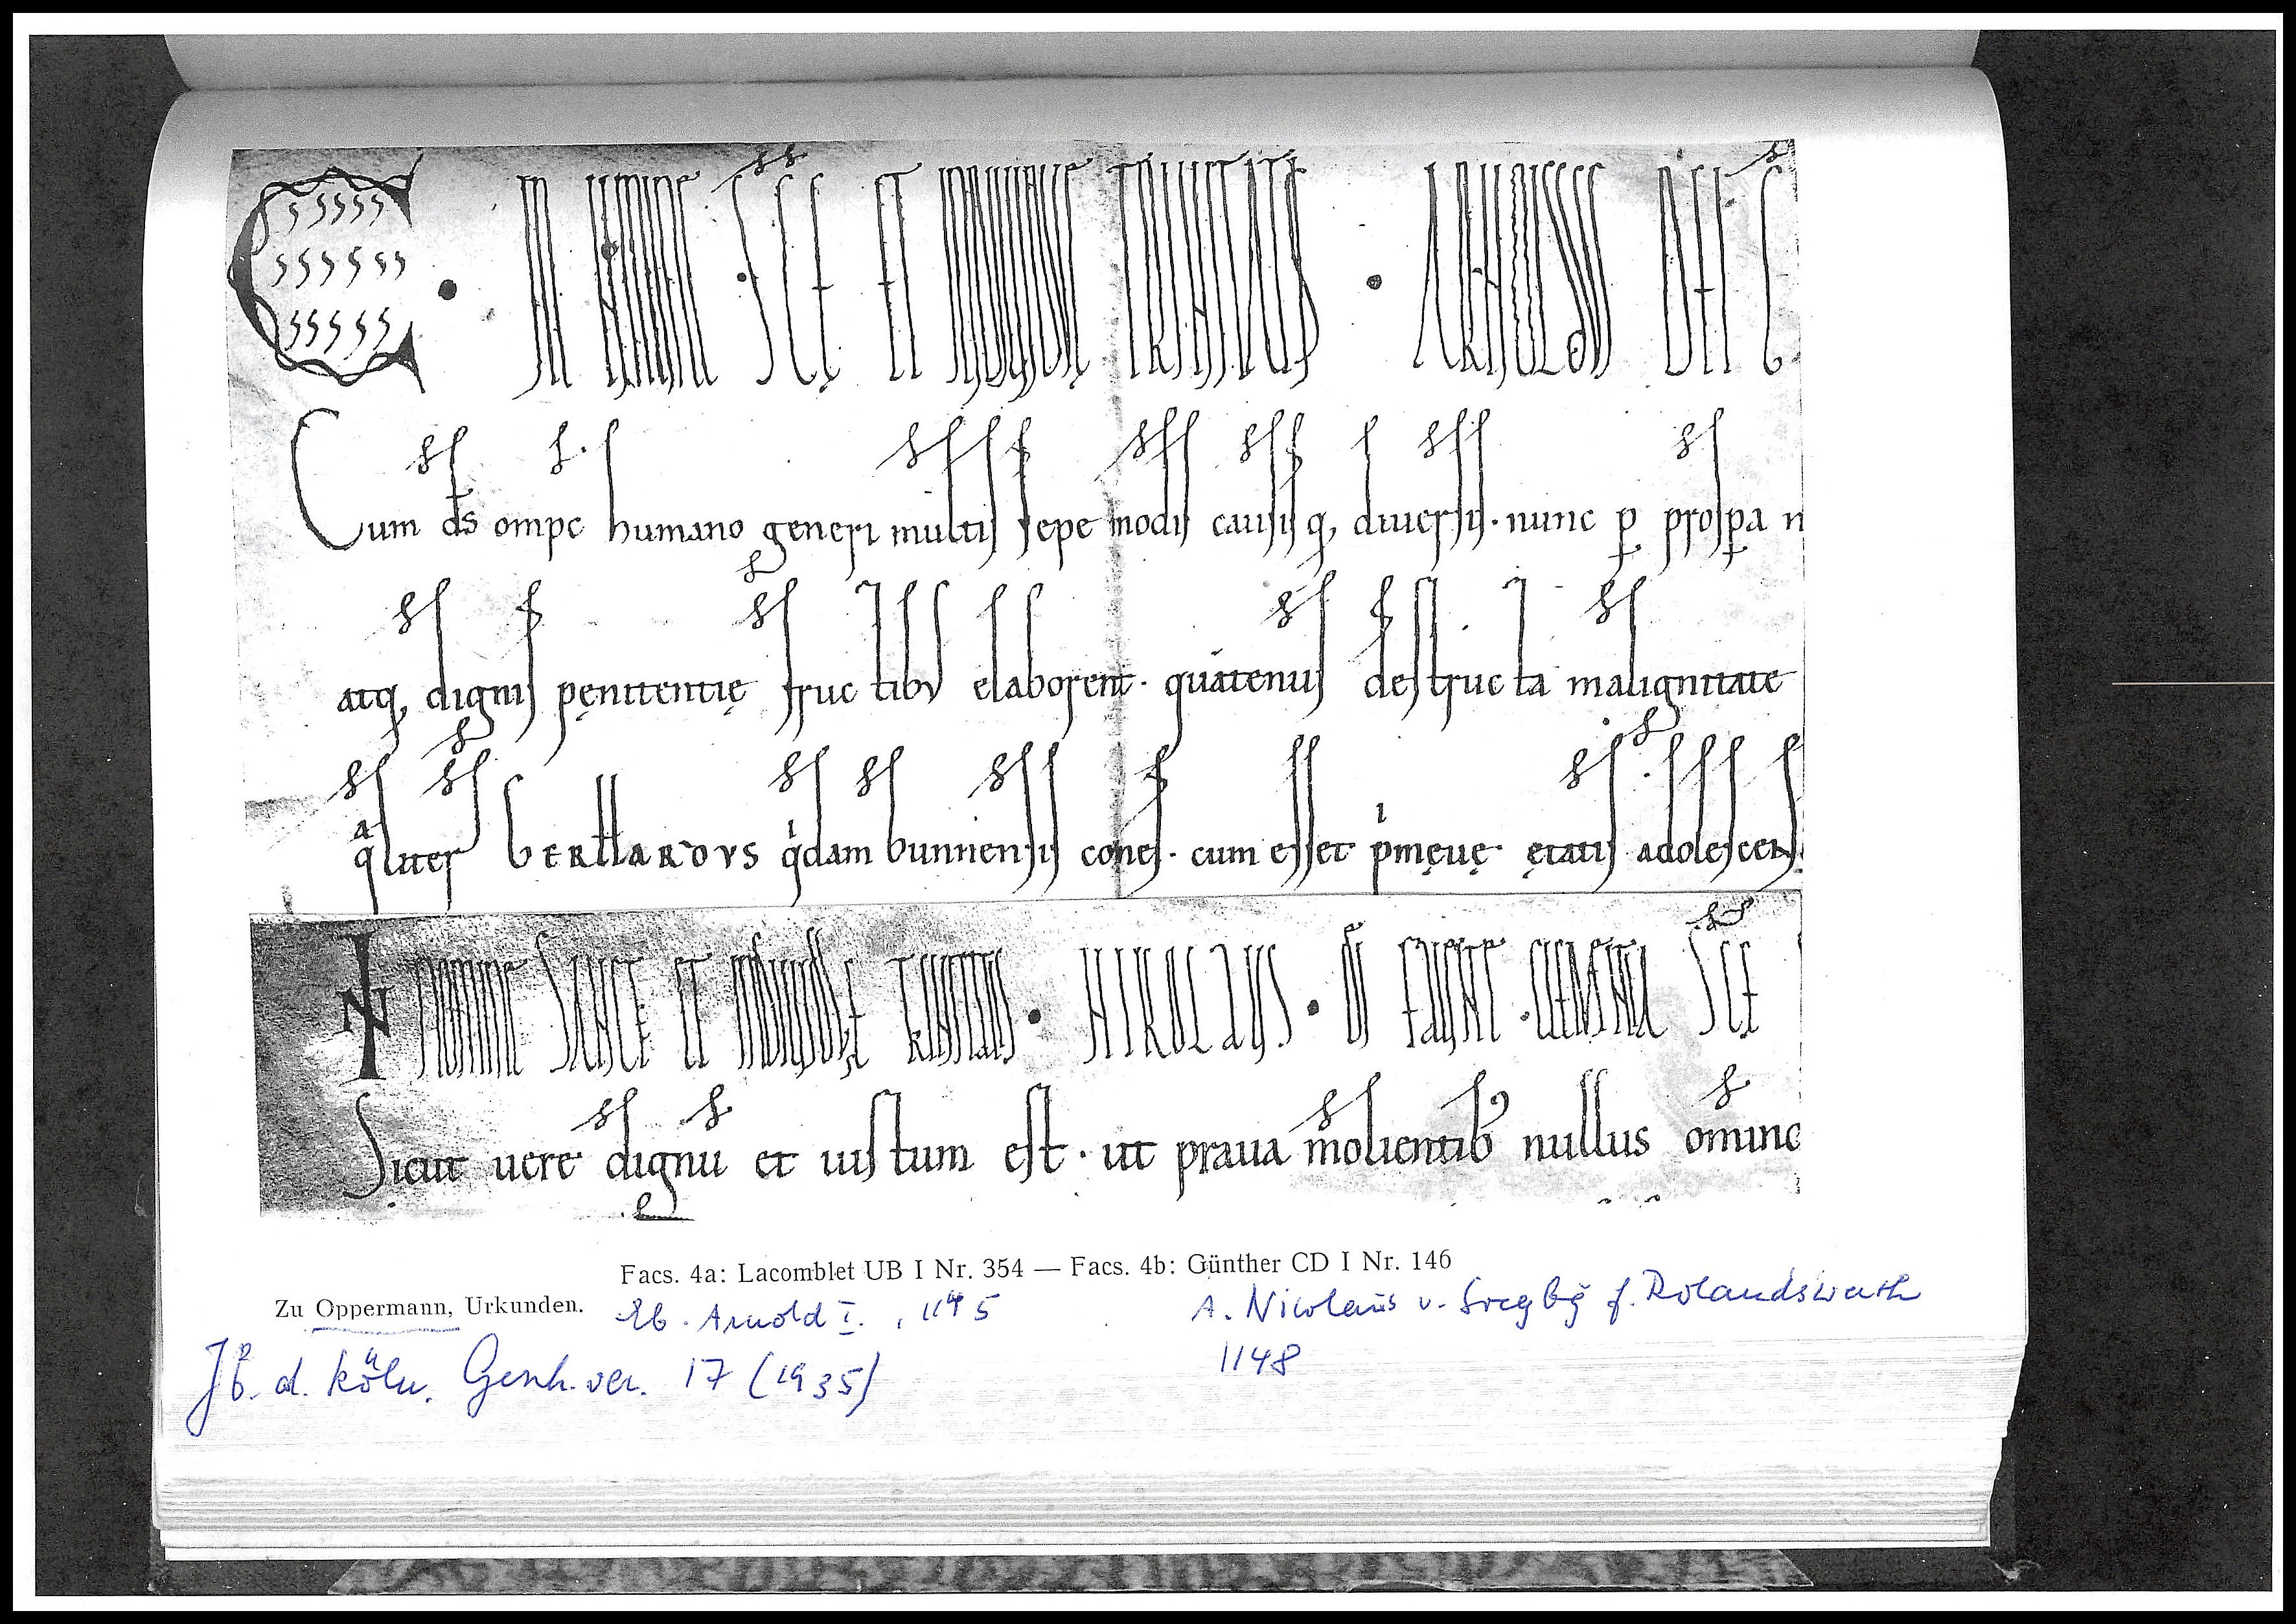 IN NOMINE SCE ET INDIVIDUE TRINITATIS · ARNOLDUS DEI G
Cum ds ompc humano generi multis sepe modis causisq, diuersis · nunc p prospa n
atq, dignis pęnitentię fructibus elaborent · quatenus destructa malignitate
qliter BERNARDVS qdam bunnensis comes · cum esset pmeuę ętatis adolescens
IN NOMINE SANCTE ET INDIVIDUE TRINITATIS · NIKOLAUS · DI SCE
Sicut uere dignu et iustum est · ut praua molientib nullus ominc
Facs. 4a: Lacomblet UB I Nr. 354 — Facs. 4b: Günther CD I Nr. 146
Zu Oppermann, Urkunden. Eb. Arnold I., 1145 A. Nicolaus v. Siegbg f. Rolandswerth
Jb. d. Köln. Gesch.ver. 17 (1935) 1148